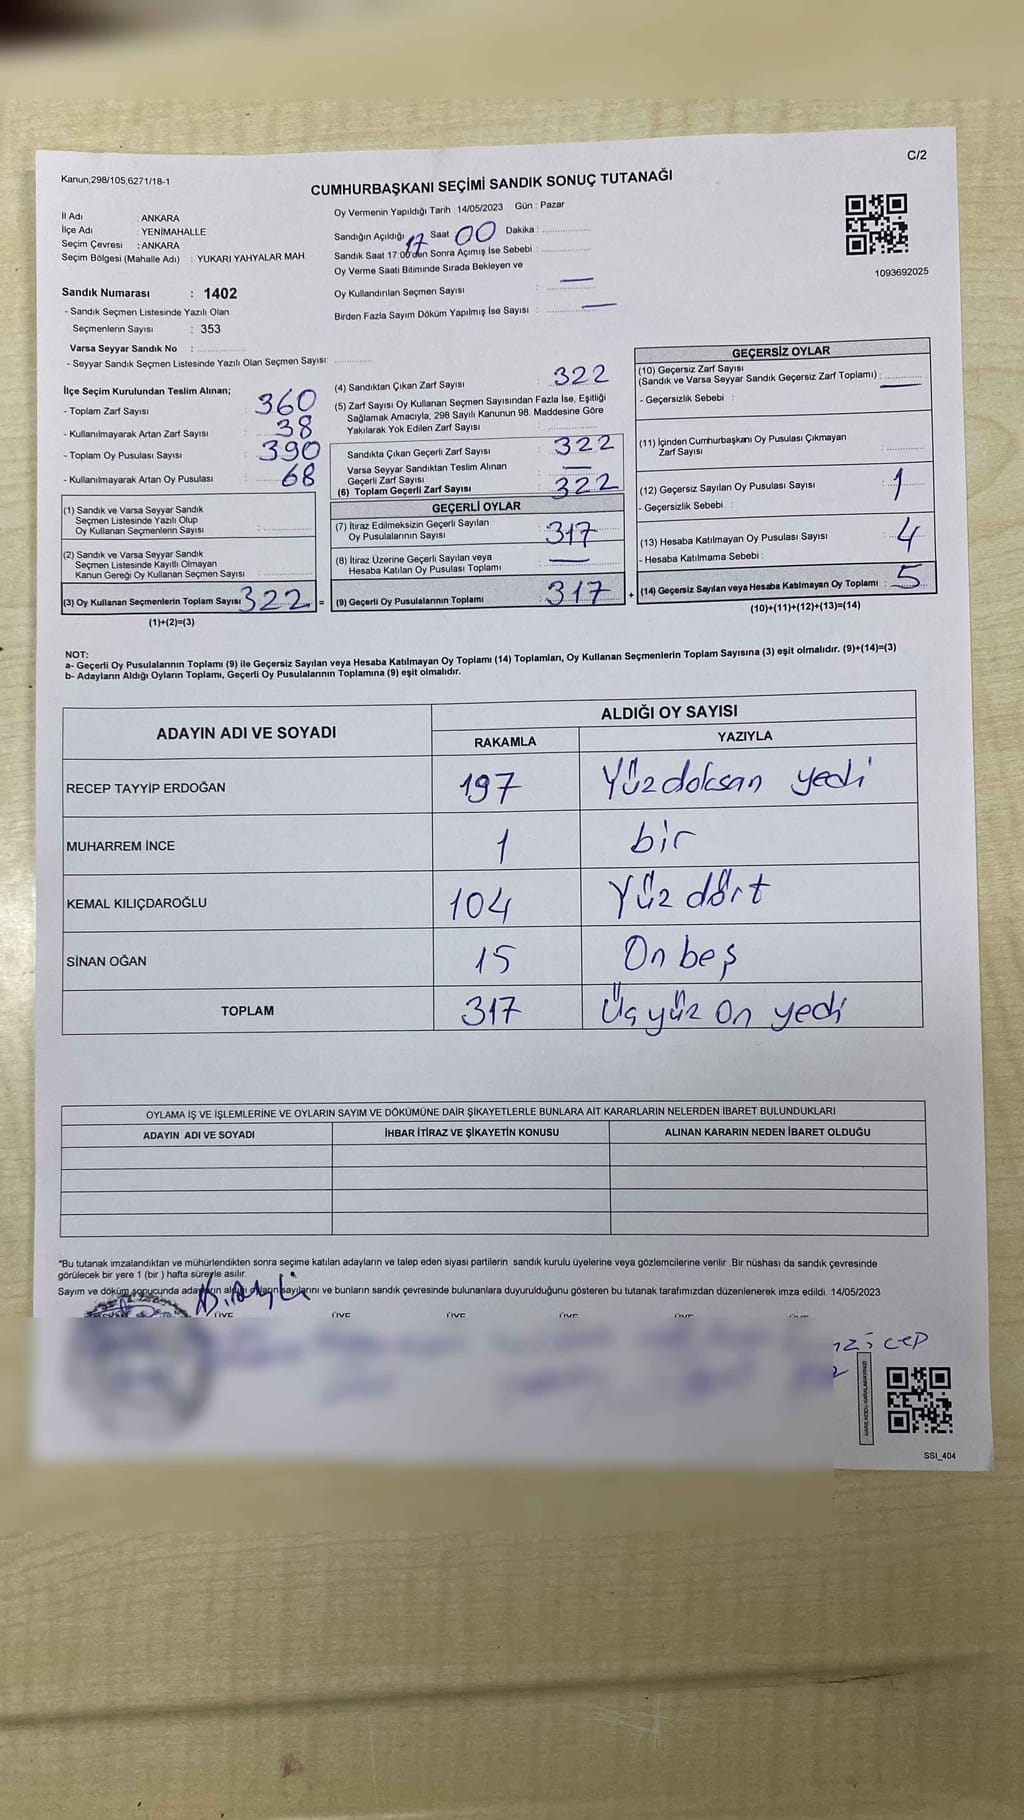 C/2
Kanun;298/105;6271/18-1
CUMHURBAŞKANI SEÇİMİ SANDIK SONUÇ TUTANAĞI
İl Adı : ANKARA
İlçe Adı : YENİMAHALLE
Seçim Çevresi : ANKARA
Seçim Bölgesi (Mahalle Adı) : YUKARI YAHYALAR MAH.
Sandık Numarası : 1402
- Sandık Seçmen Listesinde Yazılı Olan
Seçmenlerin Sayısı : 353
Varsa Seyyar Sandık No :
- Seyyar Sandık Seçmen Listesinde Yazılı Olan Seçmen Sayısı:
Oy Vermenin Yapıldığı Tarih : 14/05/2023 Gün : Pazar
Sandığın Açıldığı 17 Saat 00 Dakika :
Sandık Saat 17:00'den Sonra Açımış İse Sebebi :
Oy Verme Saati Bitiminde Sırada Bekleyen ve
Oy Kullandırılan Seçmen Sayısı : —
Birden Fazla Sayım Döküm Yapılmış İse Sayısı : —
1093692025
İlçe Seçim Kurulundan Teslim Alınan;
- Toplam Zarf Sayısı : 360
- Kullanılmayarak Artan Zarf Sayısı : 38
- Toplam Oy Pusulası Sayısı : 390
- Kullanılmayarak Artan Oy Pusulası : 68
(1) Sandık ve Varsa Seyyar Sandık
Seçmen Listesinde Yazılı Olup
Oy Kullanan Seçmenlerin Sayısı :
(2) Sandık ve Varsa Seyyar Sandık
Seçmen Listesinde Kayıtlı Olmayan
Kanun Gereği Oy Kullanan Seçmen Sayısı :
(3) Oy Kullanan Seçmenlerin Toplam Sayısı 322 =
(1)+(2)=(3)
(4) Sandıktan Çıkan Zarf Sayısı : 322
(5) Zarf Sayısı Oy Kullanan Seçmen Sayısından Fazla İse, Eşitliği
Sağlamak Amacıyla; 298 Sayılı Kanunun 98. Maddesine Göre
Yakılarak Yok Edilen Zarf Sayısı :
Sandıkta Çıkan Geçerli Zarf Sayısı : 322
Varsa Seyyar Sandıktan Teslim Alınan
Geçerli Zarf Sayısı : —
(6) Toplam Geçerli Zarf Sayısı : 322
GEÇERLİ OYLAR
(7) İtiraz Edilmeksizin Geçerli Sayılan
Oy Pusulalarının Sayısı : 317
(8) İtiraz Üzerine Geçerli Sayılan veya
Hesaba Katılan Oy Pusulası Toplamı : —
(9) Geçerli Oy Pusulalarının Toplamı : 317 +
GEÇERSİZ OYLAR
(10) Geçersiz Zarf Sayısı
(Sandık ve Varsa Seyyar Sandık Geçersiz Zarf Toplamı) : —
- Geçersizlik Sebebi :
(11) İçinden Cumhurbaşkanı Oy Pusulası Çıkmayan
Zarf Sayısı :
(12) Geçersiz Sayılan Oy Pusulası Sayısı : 1
- Geçersizlik Sebebi :
(13) Hesaba Katılmayan Oy Pusulası Sayısı : 4
- Hesaba Katılmama Sebebi :
(14) Geçersiz Sayılan veya Hesaba Katılmayan Oy Toplamı : 5
(10)+(11)+(12)+(13)=(14)
NOT:
a- Geçerli Oy Pusulalarının Toplamı (9) ile Geçersiz Sayılan veya Hesaba Katılmayan Oy Toplamı (14) Toplamları, Oy Kullanan Seçmenlerin Toplam Sayısına (3) eşit olmalıdır. (9)+(14)=(3)
b- Adayların Aldığı Oyların Toplamı, Geçerli Oy Pusulalarının Toplamına (9) eşit olmalıdır.
ADAYIN ADI VE SOYADI
ALDIĞI OY SAYISI
RAKAMLA YAZIYLA
RECEP TAYYİP ERDOĞAN 197 Yüzdoksan yedi
MUHARREM İNCE 1 bir
KEMAL KILIÇDAROĞLU 104 Yüz dört
SİNAN OĞAN 15 On beş
TOPLAM 317 Üçyüz On yedi
OYLAMA İŞ VE İŞLEMLERİNE VE OYLARIN SAYIM VE DÖKÜMÜNE DAİR ŞİKAYETLERLE BUNLARA AİT KARARLARIN NELERDEN İBARET BULUNDUKLARI
ADAYIN ADI VE SOYADI İHBAR İTİRAZ VE ŞİKAYETİN KONUSU ALINAN KARARIN NEDEN İBARET OLDUĞU
"Bu tutanak imzalandıktan ve mühürlendikten sonra seçime katılan adayların ve talep eden siyasi partilerin sandık kurulu üyelerine veya gözlemcilerine verilir .Bir nüshası da sandık çevresinde
görülecek bir yere 1 (bir ) hafta süreyle asılır.
Sayım ve döküm sonucunda adayların aldığı oyların sayılarını ve bunların sandık çevresinde bulunanlara duyurulduğunu gösteren bu tutanak tarafımızdan düzenlenerek imza edildi. 14/05/2023
ÜYE ÜYE ÜYE ÜYE ÜYE
SSI_404